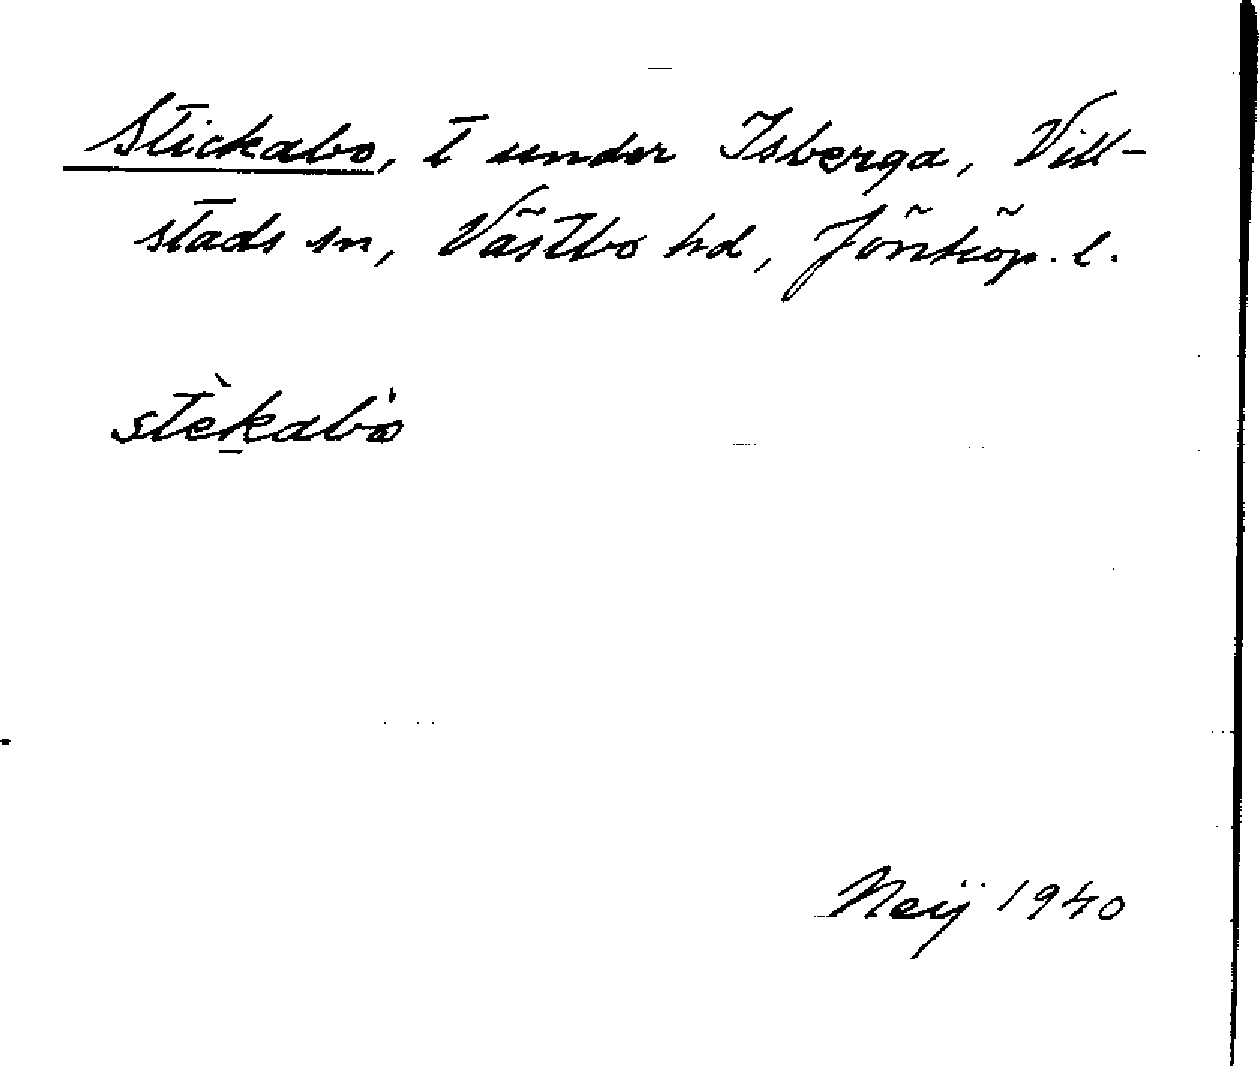 Stickabo, t under Isberga, Vill-
stads sn, Västbo hd, Jönköp. l.
stèkabò
Neij 1940